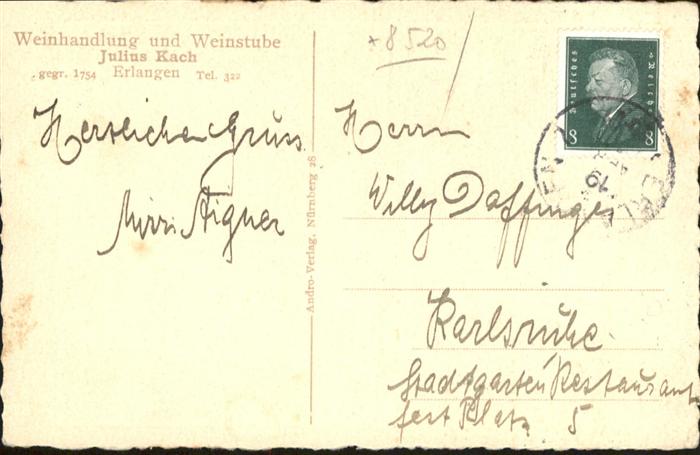 Weinhandlung und Weinstube
Julius Kach
gegr. 1754 Erlangen Tel. 322
Herzlichen Gruss
Aigner
Andro-Verlag, Nürnberg 28
*8520
Deutsches Reich
8 8
ERLANGEN
19
Herrn
Willy Daffinger
Karlsruhe.
Stadtgarten Restaurant
fest Platz 5